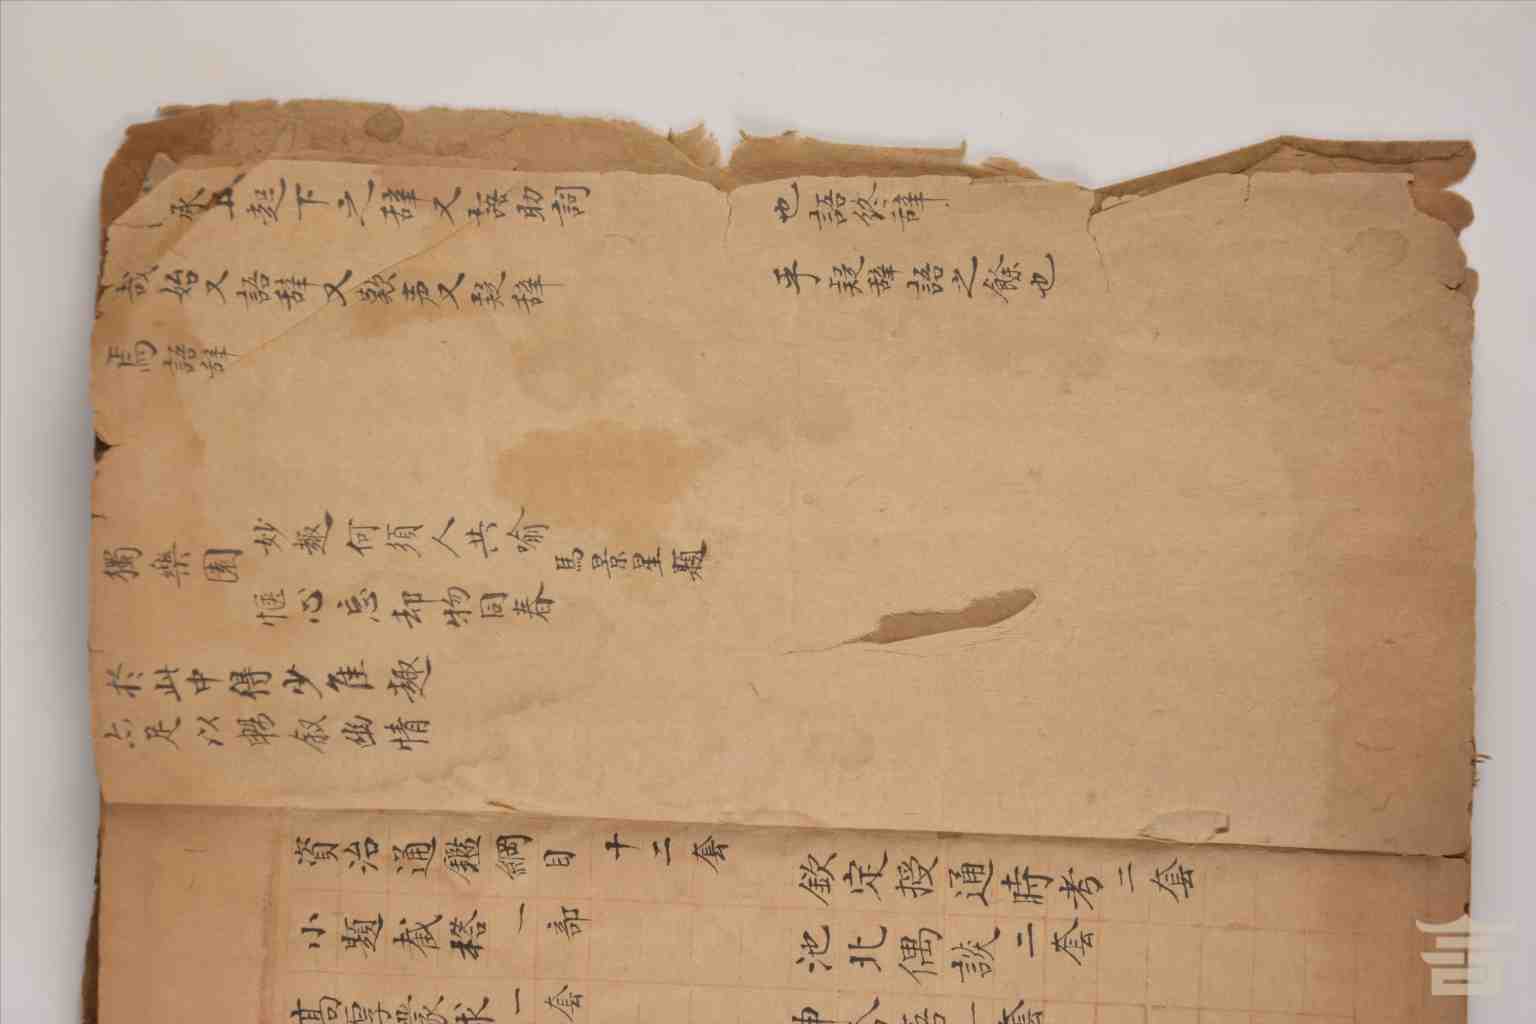 承上起下之辞又語助詞
也語終辞
哉始又語辞又歎声又疑辞
乎疑辞語之餘也
焉語辞
獨樂園
妙趣何須人共喻
惬心忘却物同春
馬景星題
於此中得少佳趣
亦足以暢叙幽情
資治通鑑綱目 十二套
欽定授通時考二套
小題截搭一部
池北偶談二套
高厚蒙求一套
語一套